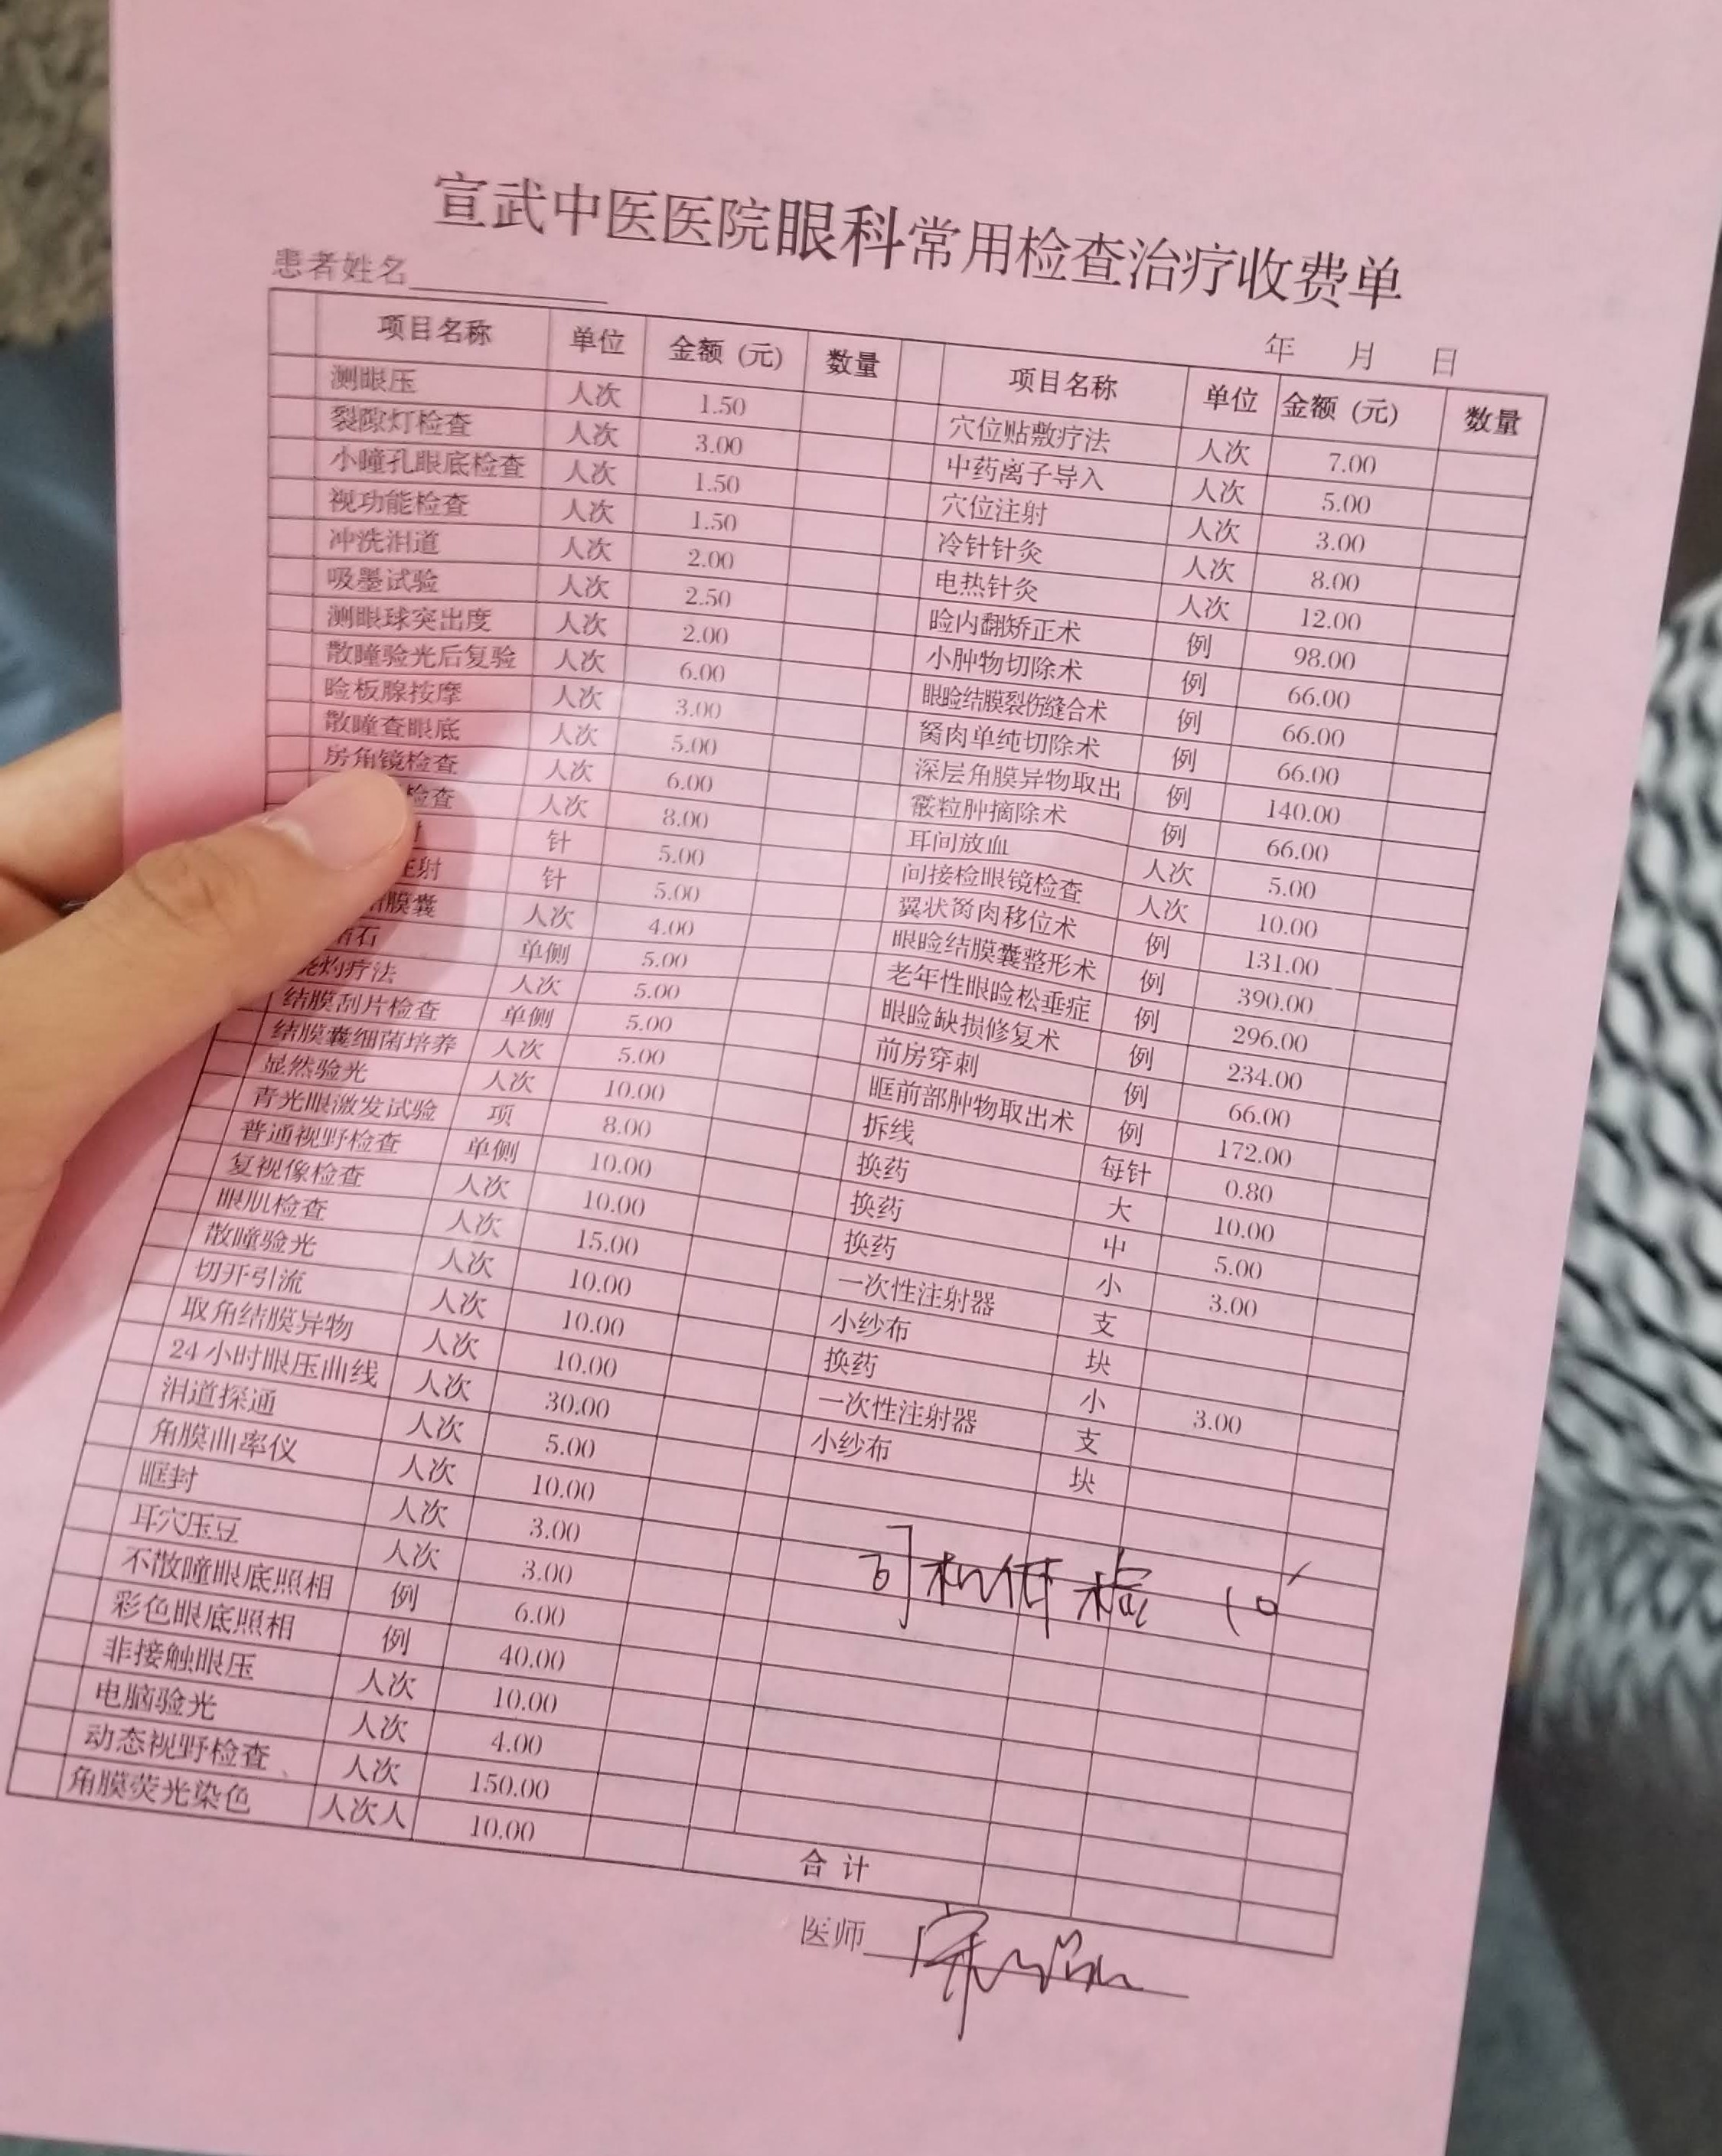 宣武中医医院眼科常用检查治疗收费单
患者姓名
年 月 日
项目名称 单位 金额 (元) 数量 项目名称 单位 金额 (元) 数量
测眼压 人次 1.50 穴位贴敷疗法 人次 7.00
裂隙灯检查 人次 3.00 中药离子导入 人次 5.00
小瞳孔眼底检查 人次 1.50 穴位注射 人次 3.00
视功能检查 人次 1.50 冷针针灸 人次 8.00
冲洗泪道 人次 2.00 电热针灸 人次 12.00
吸墨试验 人次 2.50 睑内翻矫正术 例 98.00
测眼球突出度 人次 2.00 小肿物切除术 例 66.00
散瞳验光后复验 人次 6.00 眼睑结膜裂伤缝合术 例 66.00
睑板腺按摩 人次 3.00 胬肉单纯切除术 例 66.00
散瞳查眼底 人次 5.00 深层角膜异物取出 例 140.00
房角镜检查 人次 6.00 霰粒肿摘除术 例 66.00
检查 人次 8.00 耳间放血 人次 5.00
针 5.00 间接检眼镜检查 人次 10.00
注射 针 5.00 翼状胬肉移位术 例 131.00
结膜囊 人次 4.00 眼睑结膜囊整形术 例 390.00
结石 单侧 5.00 老年性眼睑松垂症 例 296.00
烧灼疗法 人次 5.00 眼睑缺损修复术 例 234.00
结膜刮片检查 单侧 5.00 前房穿刺 例 66.00
结膜囊细菌培养 人次 5.00 眶前部肿物取出术 例 172.00
显然验光 人次 10.00 拆线 每针 0.80
青光眼激发试验 项 8.00 换药 大 10.00
普通视野检查 单侧 10.00 换药 中 5.00
复视像检查 人次 10.00 换药 小 3.00
眼肌检查 人次 15.00 一次性注射器 支
散瞳验光 人次 10.00 小纱布 块
切开引流 人次 10.00 换药 小 3.00
取角结膜异物 人次 10.00 一次性注射器 支
24小时眼压曲线 人次 30.00 小纱布 块
泪道探通 人次 5.00
角膜曲率仪 人次 10.00
眶封 人次 3.00
耳穴压豆 人次 3.00
不散瞳眼底照相 例 6.00
彩色眼底照相 例 40.00
非接触眼压 人次 10.00
电脑验光 人次 4.00
动态视野检查 人次 150.00
角膜荧光染色 人次人 10.00
司机体检 10
合计
医师